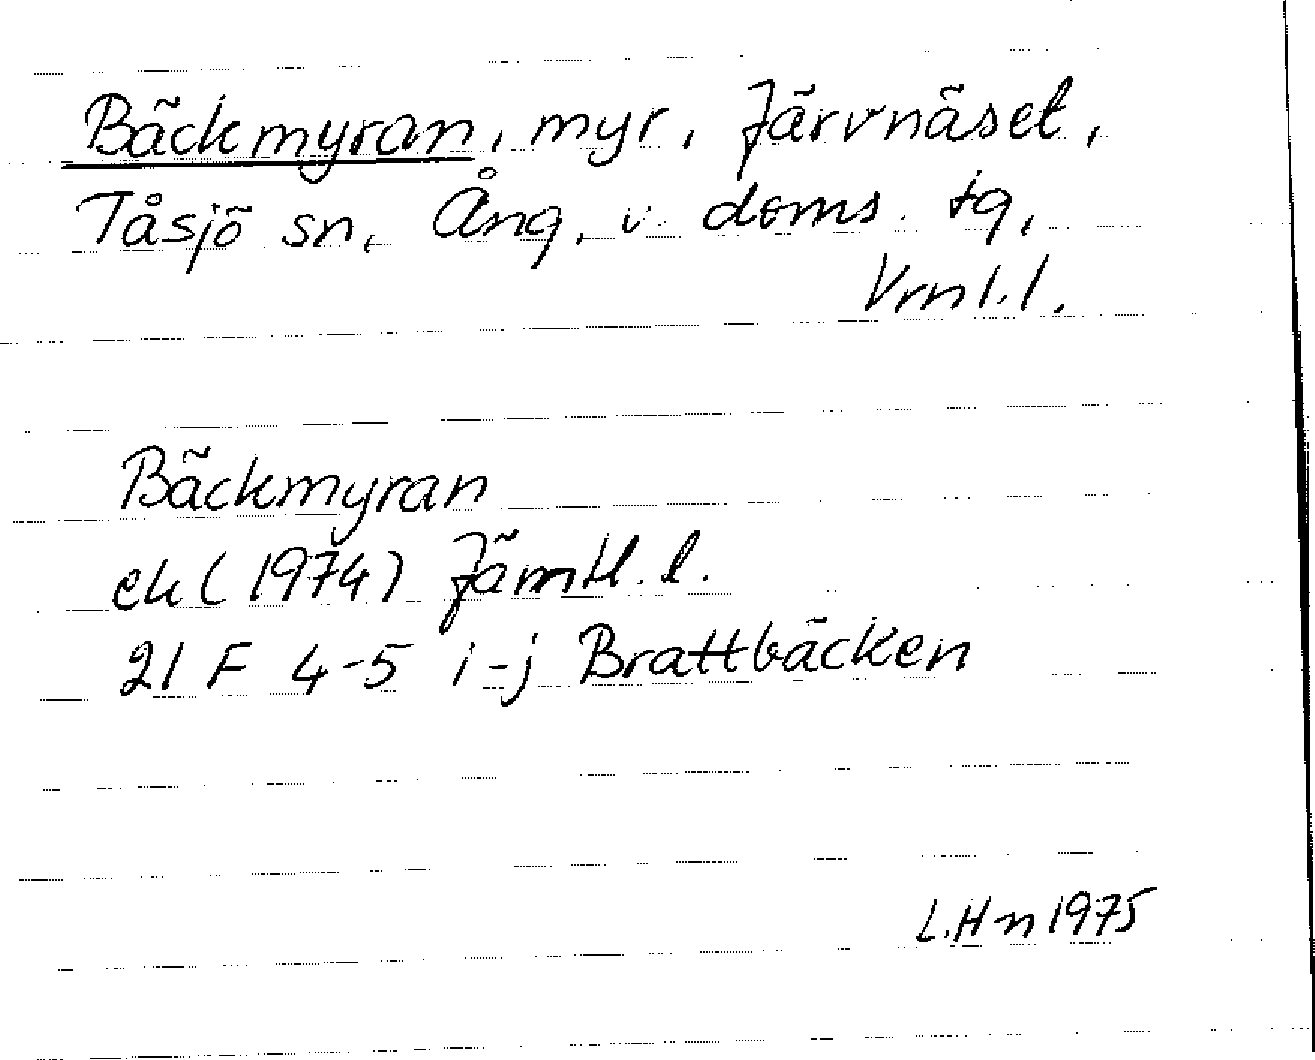 Bäckmyran, myr, Järvnäset,
Tåsjö sn, Ång, v. doms. tg,
Vrnl.l.
Bäckmyran
ek (1974) Jämtl. l.
21 F 4-5 i-j Brattbäcken
L.Hn 1975